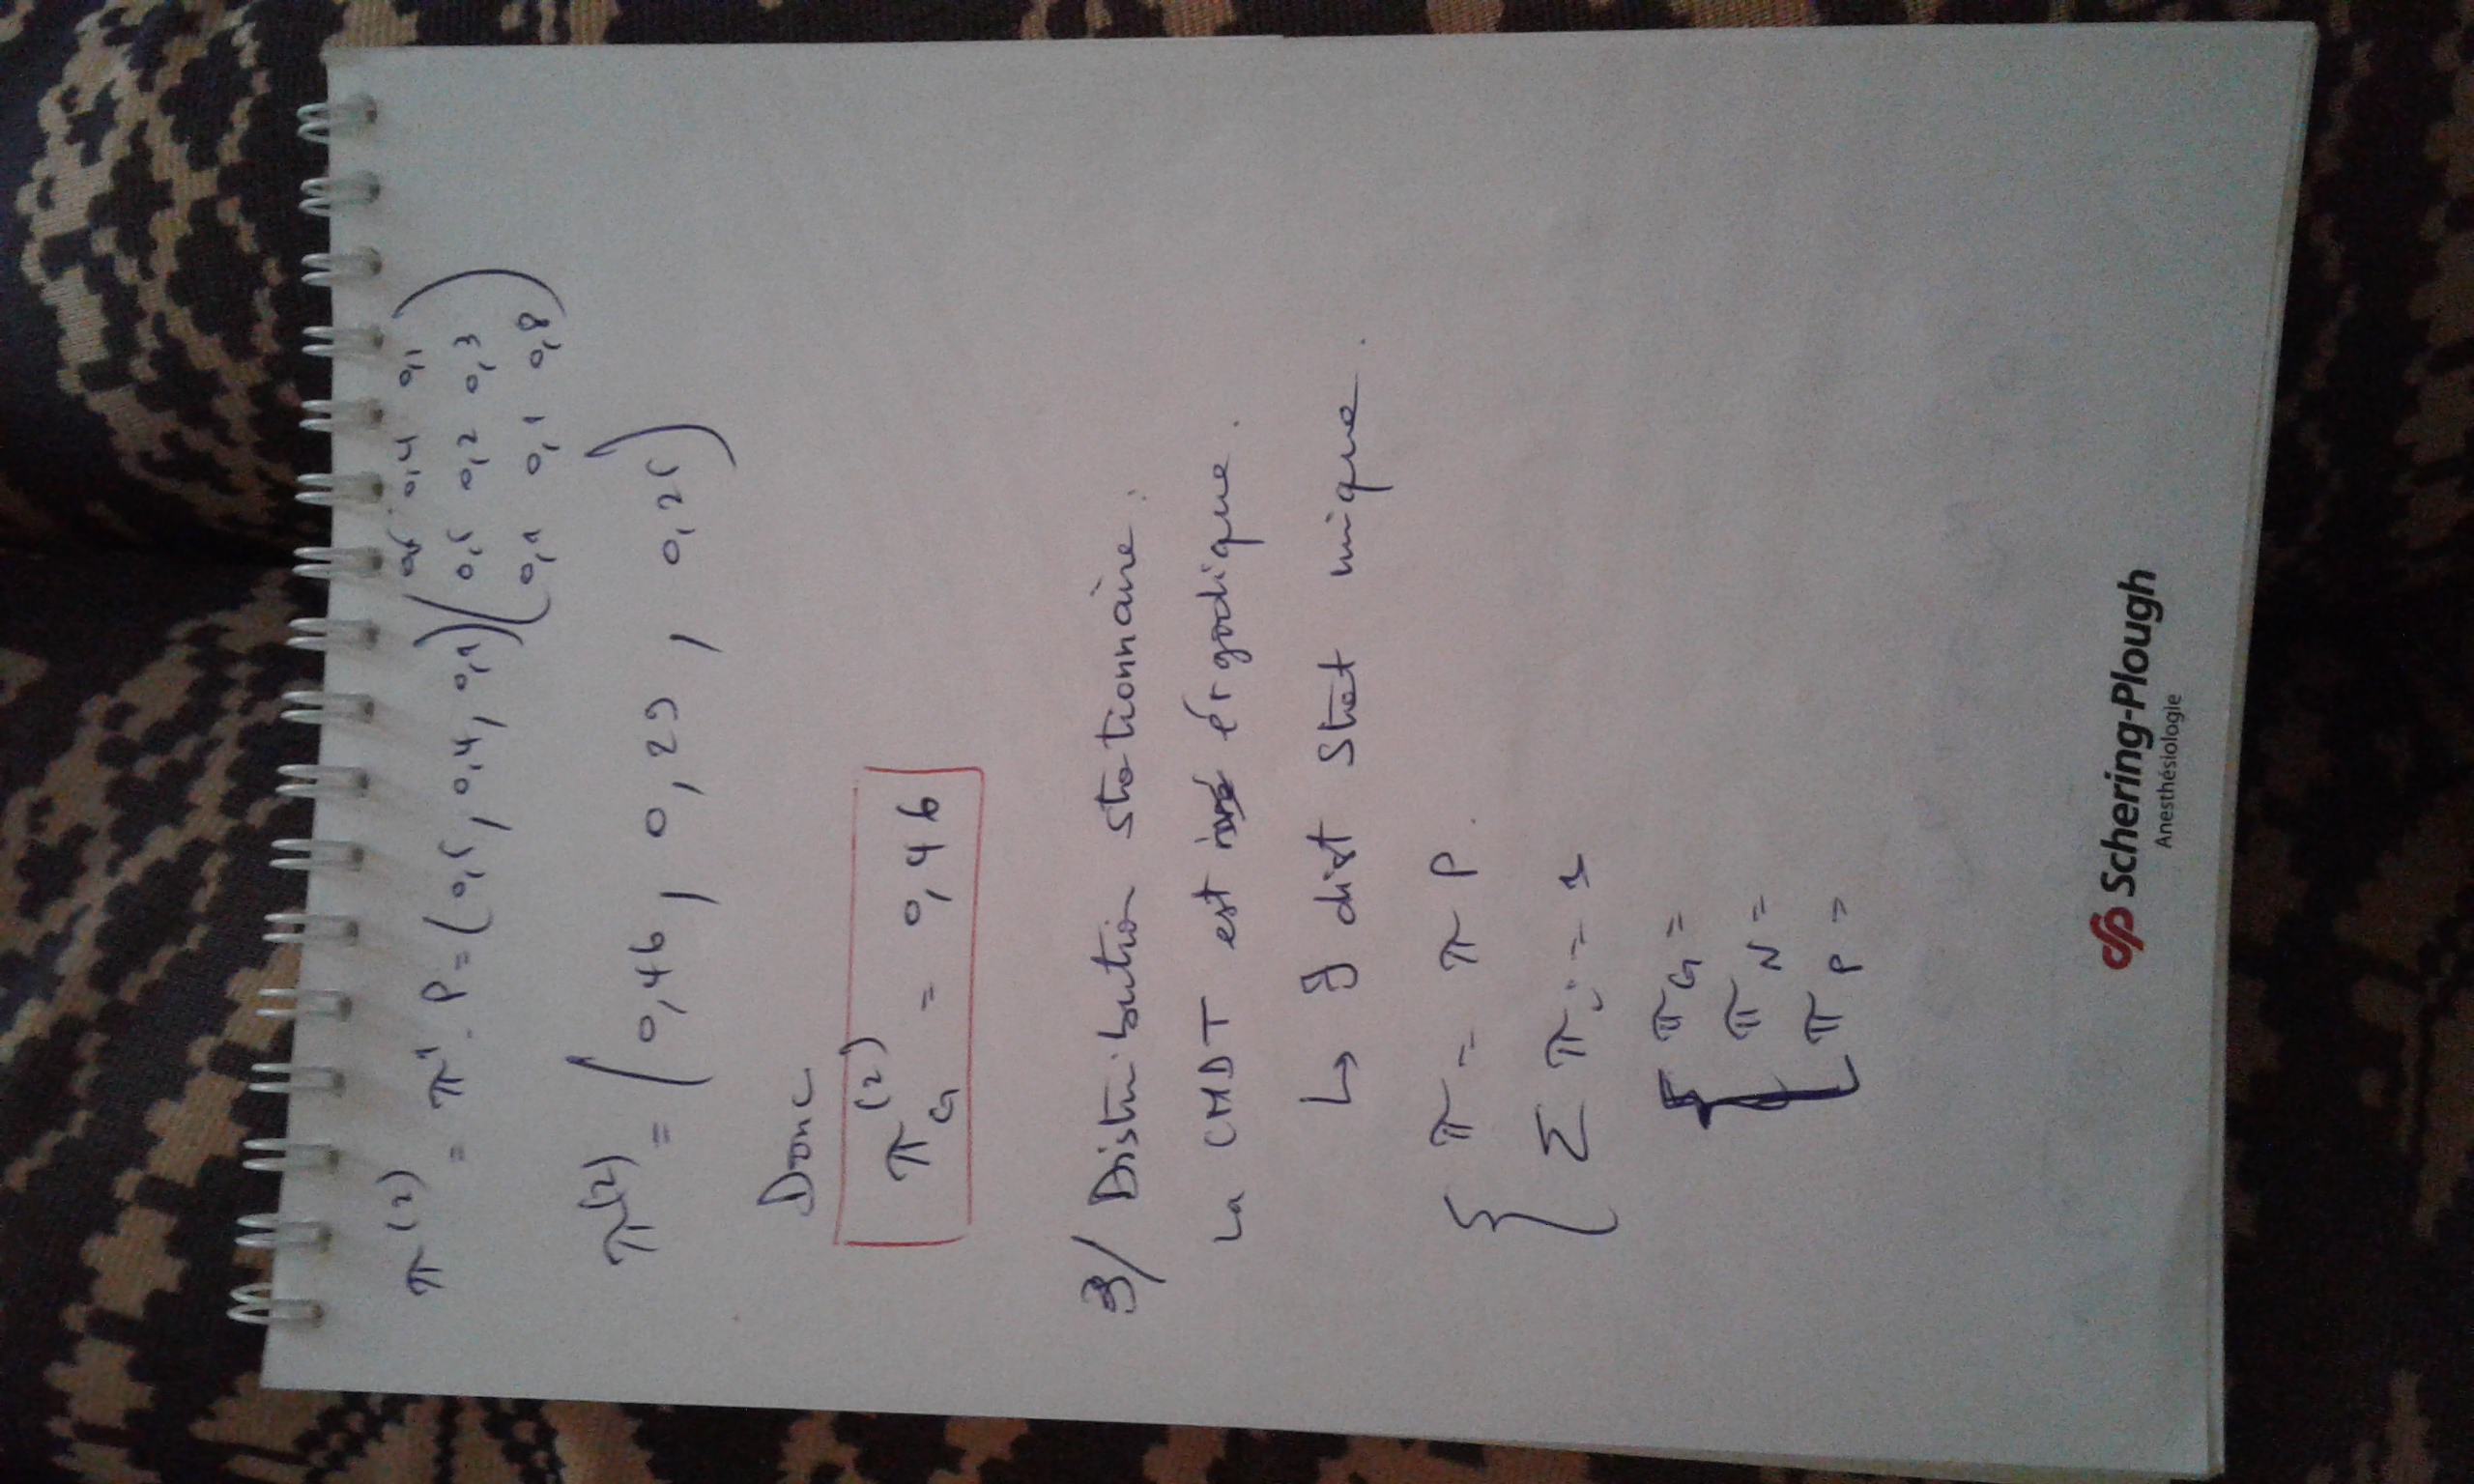 π^(2) = π^1 . P = (0,5, 0,4, 0,1) (0,5 0,4 0,1
0,5 0,2 0,3
0,1 0,1 0,8)
π^(2) = (0,46, 0,29, 0,25)
Donc
π_G^(2) = 0,46
3/ Distribution stationnaire.
La CMDT est érgodique.
↳ ∃ dist Stat unique.
{ π = π P.
Σ π_i = 1
{ π_G =
π_N =
π_P =
Schering-Plough
Anesthésiologie